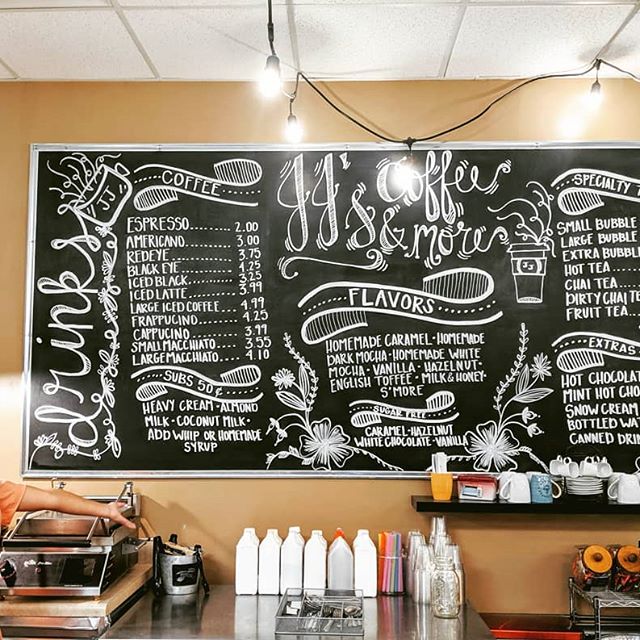 drinks
JJ
COFFEE
ESPRESSO......... 2.00
AMERICANO........ 3.00
REDEYE........... 3.75
BLACK EYE........ 4.25
ICED BLACK....... 3.25
ICED LATTE....... 3.99
LARGE ICED COFFEE.. 4.99
FRAPPUCINO....... 4.25
CAPPUCINO........ 3.99
SMALL MACCHIATO.. 3.55
LARGE MACCHIATO.... 4.10
SUBS 50¢
HEAVY CREAM • ALMOND
MILK • COCONUT MILK •
ADD WHIP OR HOMEMADE
SYRUP
JJ's Coffee
& more
FLAVORS
HOMEMADE CARAMEL • HOMEMADE
DARK MOCHA • HOMEMADE WHITE
MOCHA • VANILLA • HAZELNUT •
ENGLISH TOFFEE • MILK & HONEY •
S'MORE
SUGAR FREE
CARAMEL • HAZELNUT
WHITE CHOCOLATE • VANILLA
SPECIALTY
SMALL BUBBLE
LARGE BUBBLE
EXTRA BUBBL
HOT TEA......
CHAI TEA....
DIRTY CHAI TE
FRUIT TEA...
EXTRAS
HOT CHOCOLAT
MINT HOT CHO
SNOW CREAM
BOTTLED WAT
CANNED DRIN